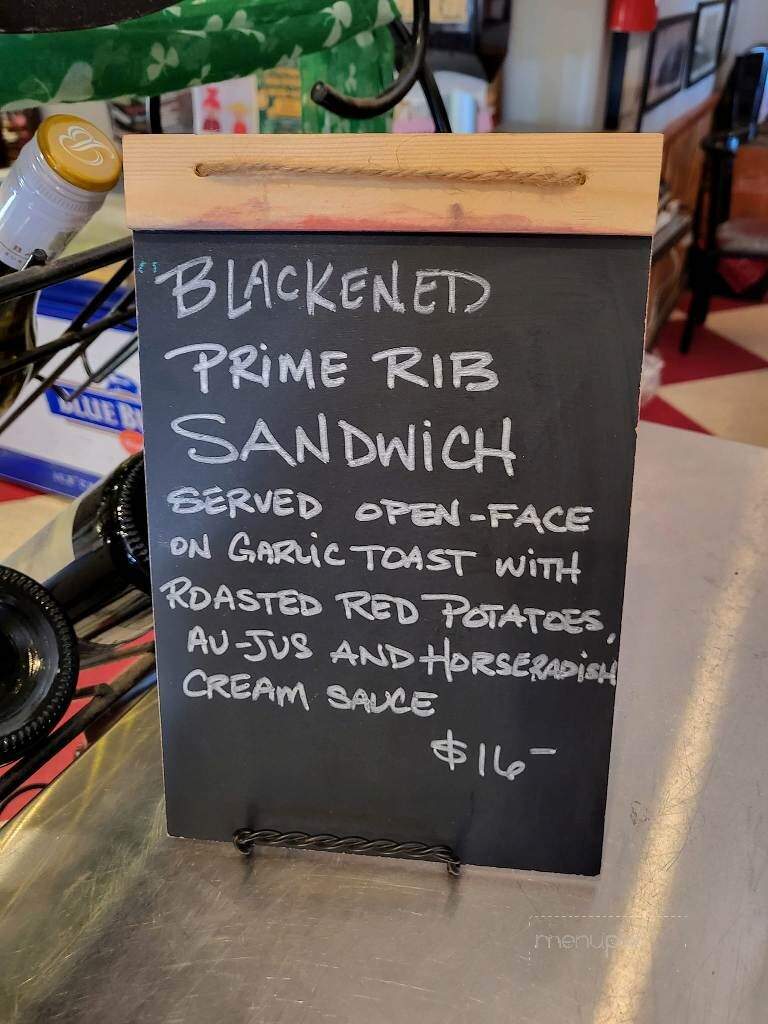 BLACKENED
PRIME RIB
SANDWICH
SERVED OPEN-FACE
ON GARLIC TOAST WITH
ROASTED RED POTATOES,
AU-JUS AND HORSERADISH
CREAM SAUCE
$16-
BLUE